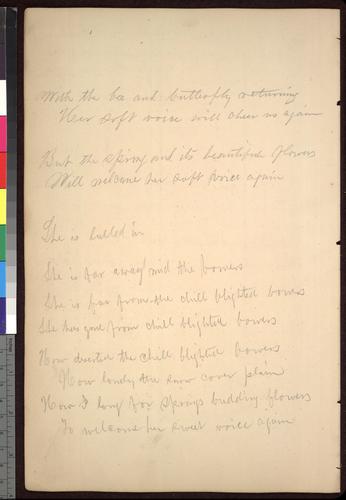 With the bee and butterfly returning
Her soft voice will cheer us again
But the spring and its beautiful flowers
Will welcome her soft voice again
She is lulled in
She is far away mid the bowers
She is far from the chill blighted bowers
She has gone from chill blighted bowers
How deserted the chill blighted bowers
How lonely the snow cover plain
How I long for springs budding flowers
To welcome her sweet voice again